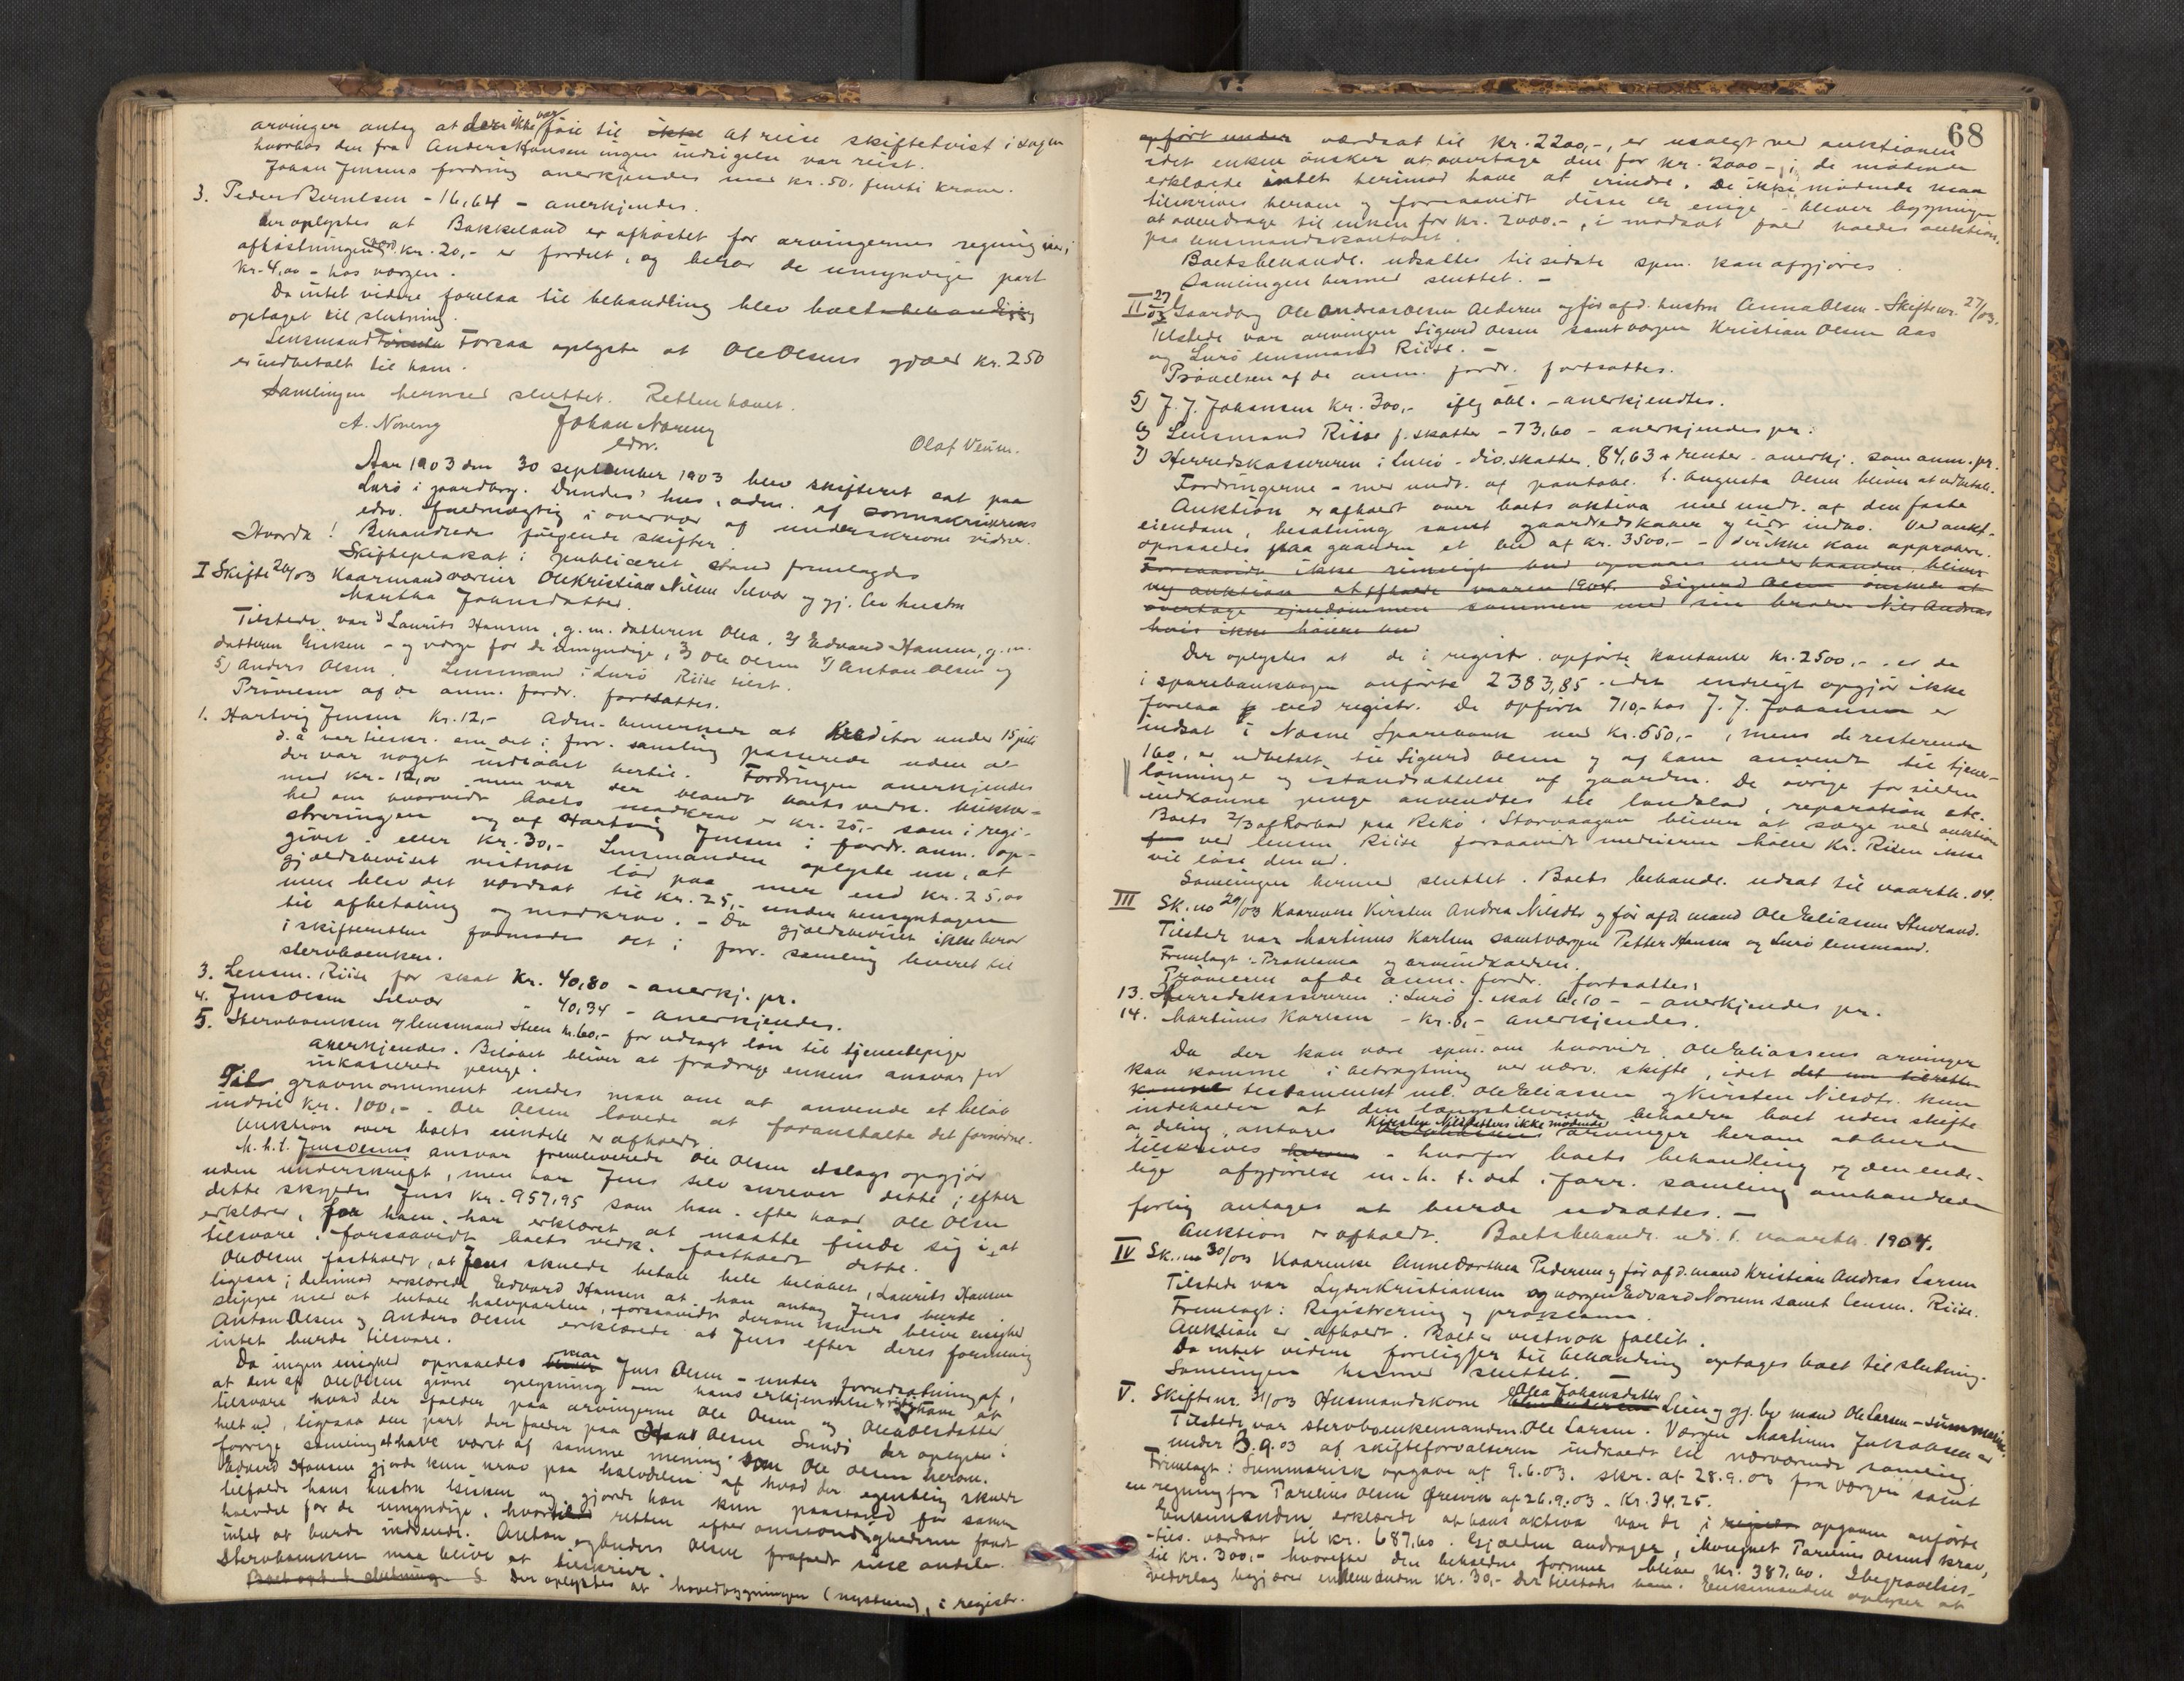 arvinger antog at der ikke var föie til ikke at reise skiftetvist i sagen
hvorhos den fra Anders Hansen ingen indsigelse var reist.
Johan Jensens fordring anerkjendes med kr. 50. femti kroner.
3. Peder Berntsen - 16,64 - anerkjendes.
Der oplystes at Bakkeland er afhöstet for arvingernes regning
afhöstningen kr. 20,- er fordelt, og beror de umyndige part
kr. 4,00 - hos værgen.
Da intet videre forelaa til behandling blev boets behandling
optaget til slutning.
Lensmand Forsaa oplyste at Ole Olsens gjæld kr. 250
er indbetalt til ham.
Samlingen hermed sluttet. Retten hævet.
A. Noreng Johan Noreng Olaf Veum.
edsv.
Aar 1903 den 30 september 1903 blev skifteret sat paa
Lurö i gaardbrg. Dundes' hus, adm. af sorenskriverens
edsv. fuldmægtig i overvær af underskrevne vidner.
Hvorda! Behandledes fölgende skifter
Skifteplakat i publiceret stand fremlagdes
I Skifte 26/03 Kaarmand værner Ole Kristian Nilsen Selvær og gj. lev hustru
Martha Johnsdatter.
Tilstede var 1) Laurits Hansen, g.m. datteren Olea, 2) Edvard Hansen, g.m.
datteren Lisken - og værge for de umyndige, 3) Ole Olsen 4) Anton Olsen og
5) Anders Olsen. Lensmand i Lurö Riise tilst.
Prövelsen af de anm. fordr. fortsattes.
1. Hartvig Jensen kr. 12,- Adm. bemerkede at kreditor under 15 juli
d.å. var tilskr. om det i forr. samling passerede uden at
der var noget indlöbet hertil. Fordringen anerkjendes
med kr. 12,00 men var der blandt boets vedk. usikker-
hed om hvorvidt boets modkrav er kr. 25,- som i regi-
streringen og af Hartvig Jensen i fordr. anm. op-
givet eller kr. 30,- Lensmanden oplyste nu, at
gjældsbeviset vistnok löd paa mer end kr. 25,00
men blev det værdsat til kr. 25,- under hensyntagen
til afbetaling og modkrav. - Da gjældsbeviset ikke beror
i skifteretten formodes det i forr. samling leveret til
stervboenken.
3. Lensm. Riise for skat kr. 40,80 - anerkj. pr.
4. Jens Olsen Selvær " 40,34 - anerkjendes.
5. Stervboenken og lensmand Steen kr. 60,- for udlagt lön til tjenestepiger
anerkjendes. Belöbet bliver at fradrage enkens ansvar for
inkasserede penge.
Til gravmonument enedes man om at anvende et belöb
indtil kr. 100,-. Ole Olsen lovede at foranstalte det fornödne.
Auktion over boets eiendele er afholdt.
M.h.t. Jens Olsens ansvar fremleverede Ole Olsen et slags opgjör
uden underskrift, men har Jens selv skrevet dette; efter
dette skylder Jens kr. 957,95 som han efter hvad Ole Olsen
erklærer, for ham har erklæret at maatte finde sig i at
tilsvare. forsaavidt boets vedk. fastholdt dette.
Ole Olsen fastholdt, at Jens skulde betale hele belöbet, Laurits Hansen
ligesaa; derimod erklærede Edvard Hansen at han antog Jens burde
slippe med at betale halvparten, forsaavidt derom kunde blive enighed
Anton Olsen og Anders Olsen erklærede at Jens efter deres formening
intet burde tilsvare.
Da ingen enighed opnaaedes maa Jens Olsen - under forudsætning af,
at den af Ole Olsen givne oplysning om hans erkjendelse er rigtig - at
tilsvare hvad der falder paa arvingerne Ole Olsen og Olea Olsdatter
helt ud, ligesaa den part der falder paa Hans Olsen Sundö der oplystes i
forrige samling at have været af samme mening som Ole Olsen herom.
Edvard Hansen gjorde kun krav paa halvdelen af hvad der egentlig skulde
tilfalde hans hustru Lisken og gjorde han kun paastand for samme
halvdel for de umyndige, hvortil retten efter omstændighederne fandt
intet at burde indvende. Anton og Anders Olsen frafaldt sine andele.
Stervboenken maa blive at tilskrive.
Boet opt. t. slutning. Der oplystes at hovedbygningen (nystuen), i registr.
68
opfört under værdsat til kr. 2200,-, er usolgt ved auktionen
idet enken önsker at overtage den for kr. 2000 -; de mödende
erklærede intet herimod have at erindre. De ikke mödende maa
tilskrives herom og forsaavidt disse er enige - bliver bygningen
at overdrage til enken for kr. 2000.-, i modsat fald holdes auktion.
paa lensmandskontoret.
Boets behandl. udsattes til sidste spm. kan afgjöres.
Samlingen hermed sluttet. -
II 27/03 Gaardbrg Ole Andreas Olsen Alderen og för afd. hustru Anna Olsen - Skiftenr. 27/03.
Tilstede var arvingen Sigurd Olsen samt værgen Kristian Olsen Aas
og Lurö lensmand Riise. -
Prövelsen af de anm. fordr. fortsattes.
5) J. J. Johansen kr. 300,- iflg obl. - anerkjendtes.
6) Lensmand Riise f. skatter - 73,60 - anerkjendes pr:
7) Herredskassereren i Lurö - div. skatter. 84,63 + renter - anerkj. som anm. pr.
Fordringerne - med undt. af pantobl. t. Augusta Olsen bliver at udbetale.
Auktion er afholdt over boets aktiva med undt. af den faste
eiendom, besætning samt gaardredskaber og lidt indbo. Ved aukt-
opnaaedes paa gaarden et bud af kr. 3500,- - der ikke kan approberes.
Forsaavidt ikke rimeligt bud opnaaes underhaanden, bliver
ny auktion at afholde vaaren 1904. Sigurd Olsen önsker at
overtage ejendommen sammen med sin broder Nils Andreas
hvis ikke höiere bud
Der oplystes at de i registr. opförte kontanter kr. 2500,- er de
i sparebankbogen anförte 2383,85 - idet endeligt opgjör ikke
forelaa ved registr. De opförte 710,- hos J. J. Johansen er
indsat i Næsne Sparebank med kr. 550,-, mens de resterende
160, er udbetalt til Sigurd Olsen og af ham anvendt til tjener-
lönninge og istandsættelse af gaarden. De övrige for silden
indkomne penge anvendtes til landslod, reparation etc.
Boets 2/3 af Rorbod paa Rekö i Storvaagan bliver at sælge ved auktion
ved lensm Riise forsaavidt medeieren kr. Risen ikke
vil löse den ud.
Samlingen hermed sluttet. Boets behandl. udsat til vaarth. 04.
III Sk. no 29/03 Kaarenke Kirsten Andrea Nilsdtr og för afd. mand Ole Eliassen Stuvland.
Tilstede var Martinus Karlsen samt værgen Petter Hansen og Lurö lensmand.
Fremlagt: Proklama og arveindkaldelse.
Prövelsen af de anm. fordr. fortsattes:
13. Herredskassereren i Lurö f. skat 6,10 - - anerkjendes pr.
14. Martinus Karlsen - kr. 8,- anerkjendes.
Da der kan være spm. om hvorvidt Ole Eliassens arvinger
kan komme i betragtning ved nærv. skifte, idet det nu tilrette-
komne testamentet ml. Ole Eliassen og Kirsten Nilsdtr. kun
indeholder at den længstlevende beholder boet uden skifte
o. deling, antages Kirsten Nilsdatters ikke mödende arvinger herom at burde
tilskrives herom - hvorfor boets behandling og den ende-
lige afgjörelse m.h.t. det i forr. samling omhandlede
forlig antages at burde udsættes. -
Auktion er afholdt. Boets behandl. uds. t. vaarth. 1904.
IV Sk. no 30/03 Kaarenke Anne Dorthea Pedersen og för afd. mand Kristian Andreas Larsen
Tilstede var Lyder Kristiansen og værgen Edvard Norum samt lensm. Riise.
Fremlagt: Registrering og proklama.
Auktion er afholdt. Boet er vistnok fallit.
Da intet videre foreligger til behandling optages boet til slutning.
Samlingen hermed sluttet.
V. Skiftenr. 31/03 Husmandskone Olea Johansdatter Lien og gj. lev mand Ole Larsen - summarisk.
Tilstede var stervboenkemanden Ole Larsen. Værgen Martinus Jakobsen er
under 3.9.03 af skifteforvalteren indkaldt til nærværende samling.
Fremlagt: Summarisk opgave af 9.6.03. skr. af 28.9.03 fra værgen samt
en regning fra Parelius Olsen Örsvik af 26.9.03 - kr. 34.25.
Enkemanden erklærede at hans aktiva var de i opgaven anförte
- tils. værdsat til kr. 687,60. Gjælden andrager, iberegnet Parelius Olsens krav,
til kr. 300,- hvorefter den beholdne formue bliver kr. 387,60. I begravelses-
vederlag begjærer enkemanden kr. 30,- der tilstodes ham. Enkemanden oplyser at